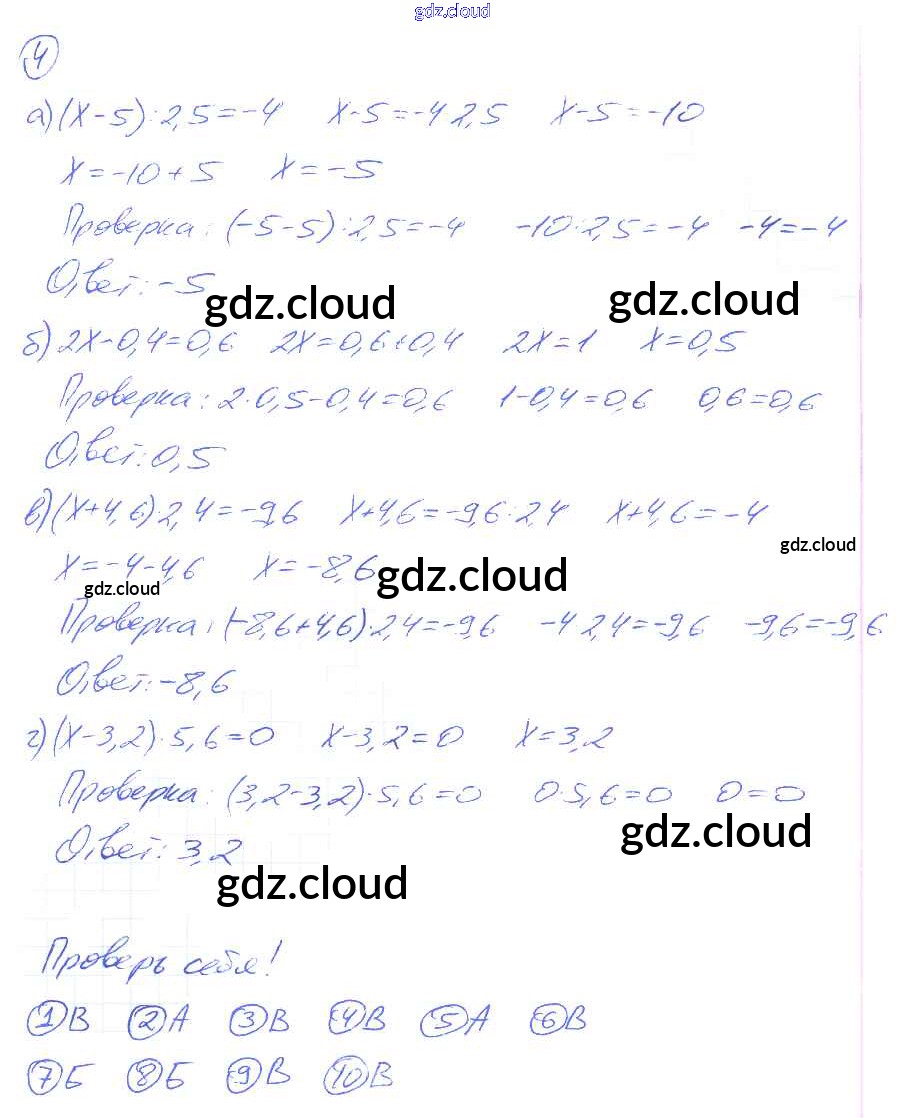 gdz.cloud
4
а) (x-5):2,5=-4 x-5=-4·2,5 x-5=-10
x=-10+5 x=-5
Проверка: (-5-5):2,5=-4 -10:2,5=-4 -4=-4
Ответ: -5
gdz.cloud gdz.cloud
б) 2x-0,4=0,6 2x=0,6+0,4 2x=1 x=0,5
Проверка: 2·0,5-0,4=0,6 1-0,4=0,6 0,6=0,6
Ответ: 0,5
в) (x+4,6)·2,4=-9,6 x+4,6=-9,6:2,4 x+4,6=-4
gdz.cloud
x=-4-4,6 x=-8,6
gdz.cloud gdz.cloud
Проверка: (-8,6+4,6)·2,4=-9,6 -4·2,4=-9,6 -9,6=-9,6
Ответ: -8,6
г) (x-3,2)·5,6=0 x-3,2=0 x=3,2
Проверка: (3,2-3,2)·5,6=0 0·5,6=0 0=0
gdz.cloud
Ответ: 3,2
gdz.cloud
Проверь себя!
1 В 2 А 3 В 4 В 5 А 6 В
7 Б 8 Б 9 В 10 В